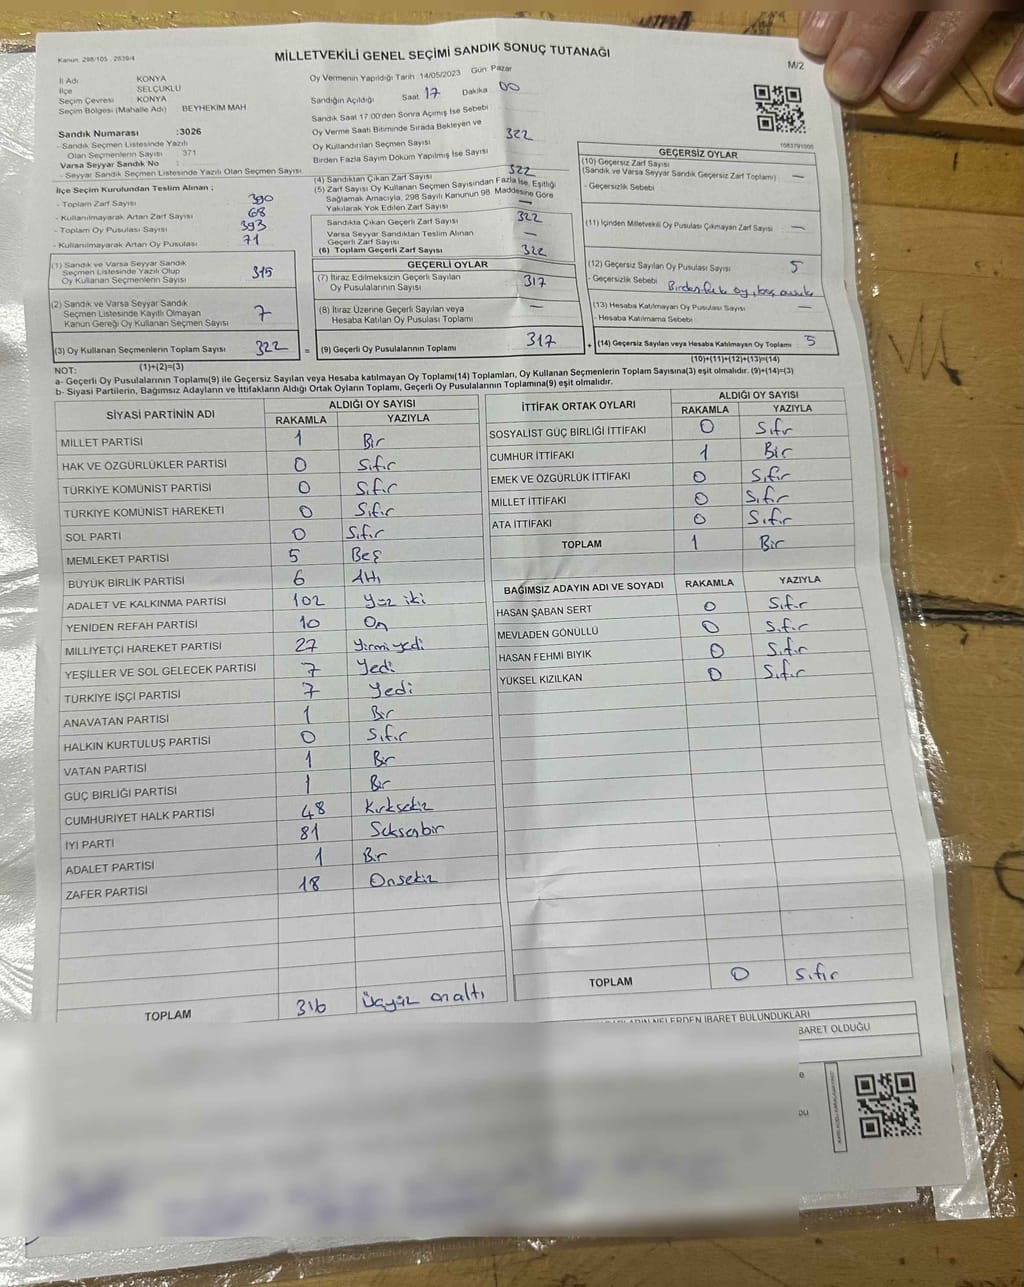 Kanun: 298/105 , 2839/4
MİLLETVEKİLİ GENEL SEÇİMİ SANDIK SONUÇ TUTANAĞI
M/2
İl Adı KONYA
İlçe SELÇUKLU
Seçim Çevresi KONYA
Seçim Bölgesi (Mahalle Adı) BEYHEKİM MAH
Sandık Numarası :3026
- Sandık Seçmen Listesinde Yazılı
Olan Seçmenlerin Sayısı 371
Varsa Seyyar Sandık No :
- Seyyar Sandık Seçmen Listesinde Yazılı Olan Seçmen Sayısı
İlçe Seçim Kurulundan Teslim Alınan ;
- Toplam Zarf Sayısı 390
- Kullanılmayarak Artan Zarf Sayısı 68
- Toplam Oy Pusulası Sayısı 393
- Kullanılmayarak Artan Oy Pusulası 71
(1) Sandık ve Varsa Seyyar Sandık
Seçmen Listesinde Yazılı Olup
Oy Kullanan Seçmenlerin Sayısı 315
(2) Sandık ve Varsa Seyyar Sandık
Seçmen Listesinde Kayıtlı Olmayan
Kanun Gereği Oy Kullanan Seçmen Sayısı 7
(3) Oy Kullanan Seçmenlerin Toplam Sayısı 322
(1)+(2)=(3)
Oy Vermenin Yapıldığı Tarih :14/05/2023 Gün: Pazar
Sandığın Açıldığı Saat 17 Dakika 00
Sandık Saat 17:00'den Sonra Açımış İse Sebebi
Oy Verme Saati Bitiminde Sırada Bekleyen ve
Oy Kullandırılan Seçmen Sayısı 322
Birden Fazla Sayım Döküm Yapılmış İse Sayısı
(4) Sandıktan Çıkan Zarf Sayısı 322
(5) Zarf Sayısı Oy Kullanan Seçmen Sayısından Fazla İse, Eşitliği
Sağlamak Amacıyla, 298 Sayılı Kanunun 98. Maddesine Göre
Yakılarak Yok Edilen Zarf Sayısı —
Sandıkta Çıkan Geçerli Zarf Sayısı 322
Varsa Seyyar Sandıktan Teslim Alınan
Geçerli Zarf Sayısı —
(6) Toplam Geçerli Zarf Sayısı 322
GEÇERLİ OYLAR
(7) İtiraz Edilmeksizin Geçerli Sayılan
Oy Pusulalarının Sayısı 317
(8) İtiraz Üzerine Geçerli Sayılan veya
Hesaba Katılan Oy Pusulası Toplamı —
= (9) Geçerli Oy Pusulalarının Toplamı 317
1083791000
GEÇERSİZ OYLAR
(10) Geçersiz Zarf Sayısı
(Sandık ve Varsa Seyyar Sandık Geçersiz Zarf Toplamı) —
- Geçersizlik Sebebi
(11) İçinden Milletvekili Oy Pusulası Çıkmayan Zarf Sayısı —
(12) Geçersiz Sayılan Oy Pusulası Sayısı 5
- Geçersizlik Sebebi Birden fazla oy, boş
(13) Hesaba Katılmayan Oy Pusulası Sayısı —
- Hesaba Katılmama Sebebi
+ (14) Geçersiz Sayılan veya Hesaba Katılmayan Oy Toplamı 5
(10)+(11)+(12)+(13)=(14)
NOT:
a- Geçerli Oy Pusulaları Toplamı(9) ile Geçersiz Sayılan veya Hesaba Katılmayan Oy Toplamı(14) Toplamları, Oy Kullanan Seçmenlerin Toplam Sayısına(3) eşit olmalıdır. (9)+(14)=(3)
b- Siyasi Partilerin, Bağımsız Adayların ve İttifakların Aldığı Ortak Oyların Toplamı, Geçerli Oy Pusulalarının Toplamına(9) eşit olmalıdır.
SİYASİ PARTİNİN ADI ALDIĞI OY SAYISI
RAKAMLA YAZIYLA
MİLLET PARTİSİ 1 Bir
HAK VE ÖZGÜRLÜKLER PARTİSİ 0 Sıfır
TÜRKİYE KOMÜNİST PARTİSİ 0 Sıfır
TÜRKİYE KOMÜNİST HAREKETİ 0 Sıfır
SOL PARTİ 0 Sıfır
MEMLEKET PARTİSİ 5 Beş
BÜYÜK BİRLİK PARTİSİ 6 Altı
ADALET VE KALKINMA PARTİSİ 102 Yüz iki
YENİDEN REFAH PARTİSİ 10 On
MİLLİYETÇİ HAREKET PARTİSİ 27 Yirmi yedi
YEŞİLLER VE SOL GELECEK PARTİSİ 7 Yedi
TÜRKİYE İŞÇİ PARTİSİ 7 Yedi
ANAVATAN PARTİSİ 1 Bir
HALKIN KURTULUŞ PARTİSİ 0 Sıfır
VATAN PARTİSİ 1 Bir
GÜÇ BİRLİĞİ PARTİSİ 1 Bir
CUMHURİYET HALK PARTİSİ 48 Kırksekiz
İYİ PARTİ 81 Seksenbir
ADALET PARTİSİ 1 Bir
ZAFER PARTİSİ 18 Onsekiz
TOPLAM 316 Üçyüz onaltı
İTTİFAK ORTAK OYLARI ALDIĞI OY SAYISI
RAKAMLA YAZIYLA
SOSYALİST GÜÇ BİRLİĞİ İTTİFAKI 0 Sıfır
CUMHUR İTTİFAKI 1 Bir
EMEK VE ÖZGÜRLÜK İTTİFAKI 0 Sıfır
MİLLET İTTİFAKI 0 Sıfır
ATA İTTİFAKI 0 Sıfır
TOPLAM 1 Bir
BAĞIMSIZ ADAYIN ADI VE SOYADI RAKAMLA YAZIYLA
HASAN ŞABAN SERT 0 Sıfır
MEVLADEN GÖNÜLLÜ 0 Sıfır
HASAN FEHMİ BIYIK 0 Sıfır
YÜKSEL KIZILKAN 0 Sıfır
TOPLAM 0 Sıfır
NELERDEN İBARET BULUNDUKLARI
BARET OLDUĞU